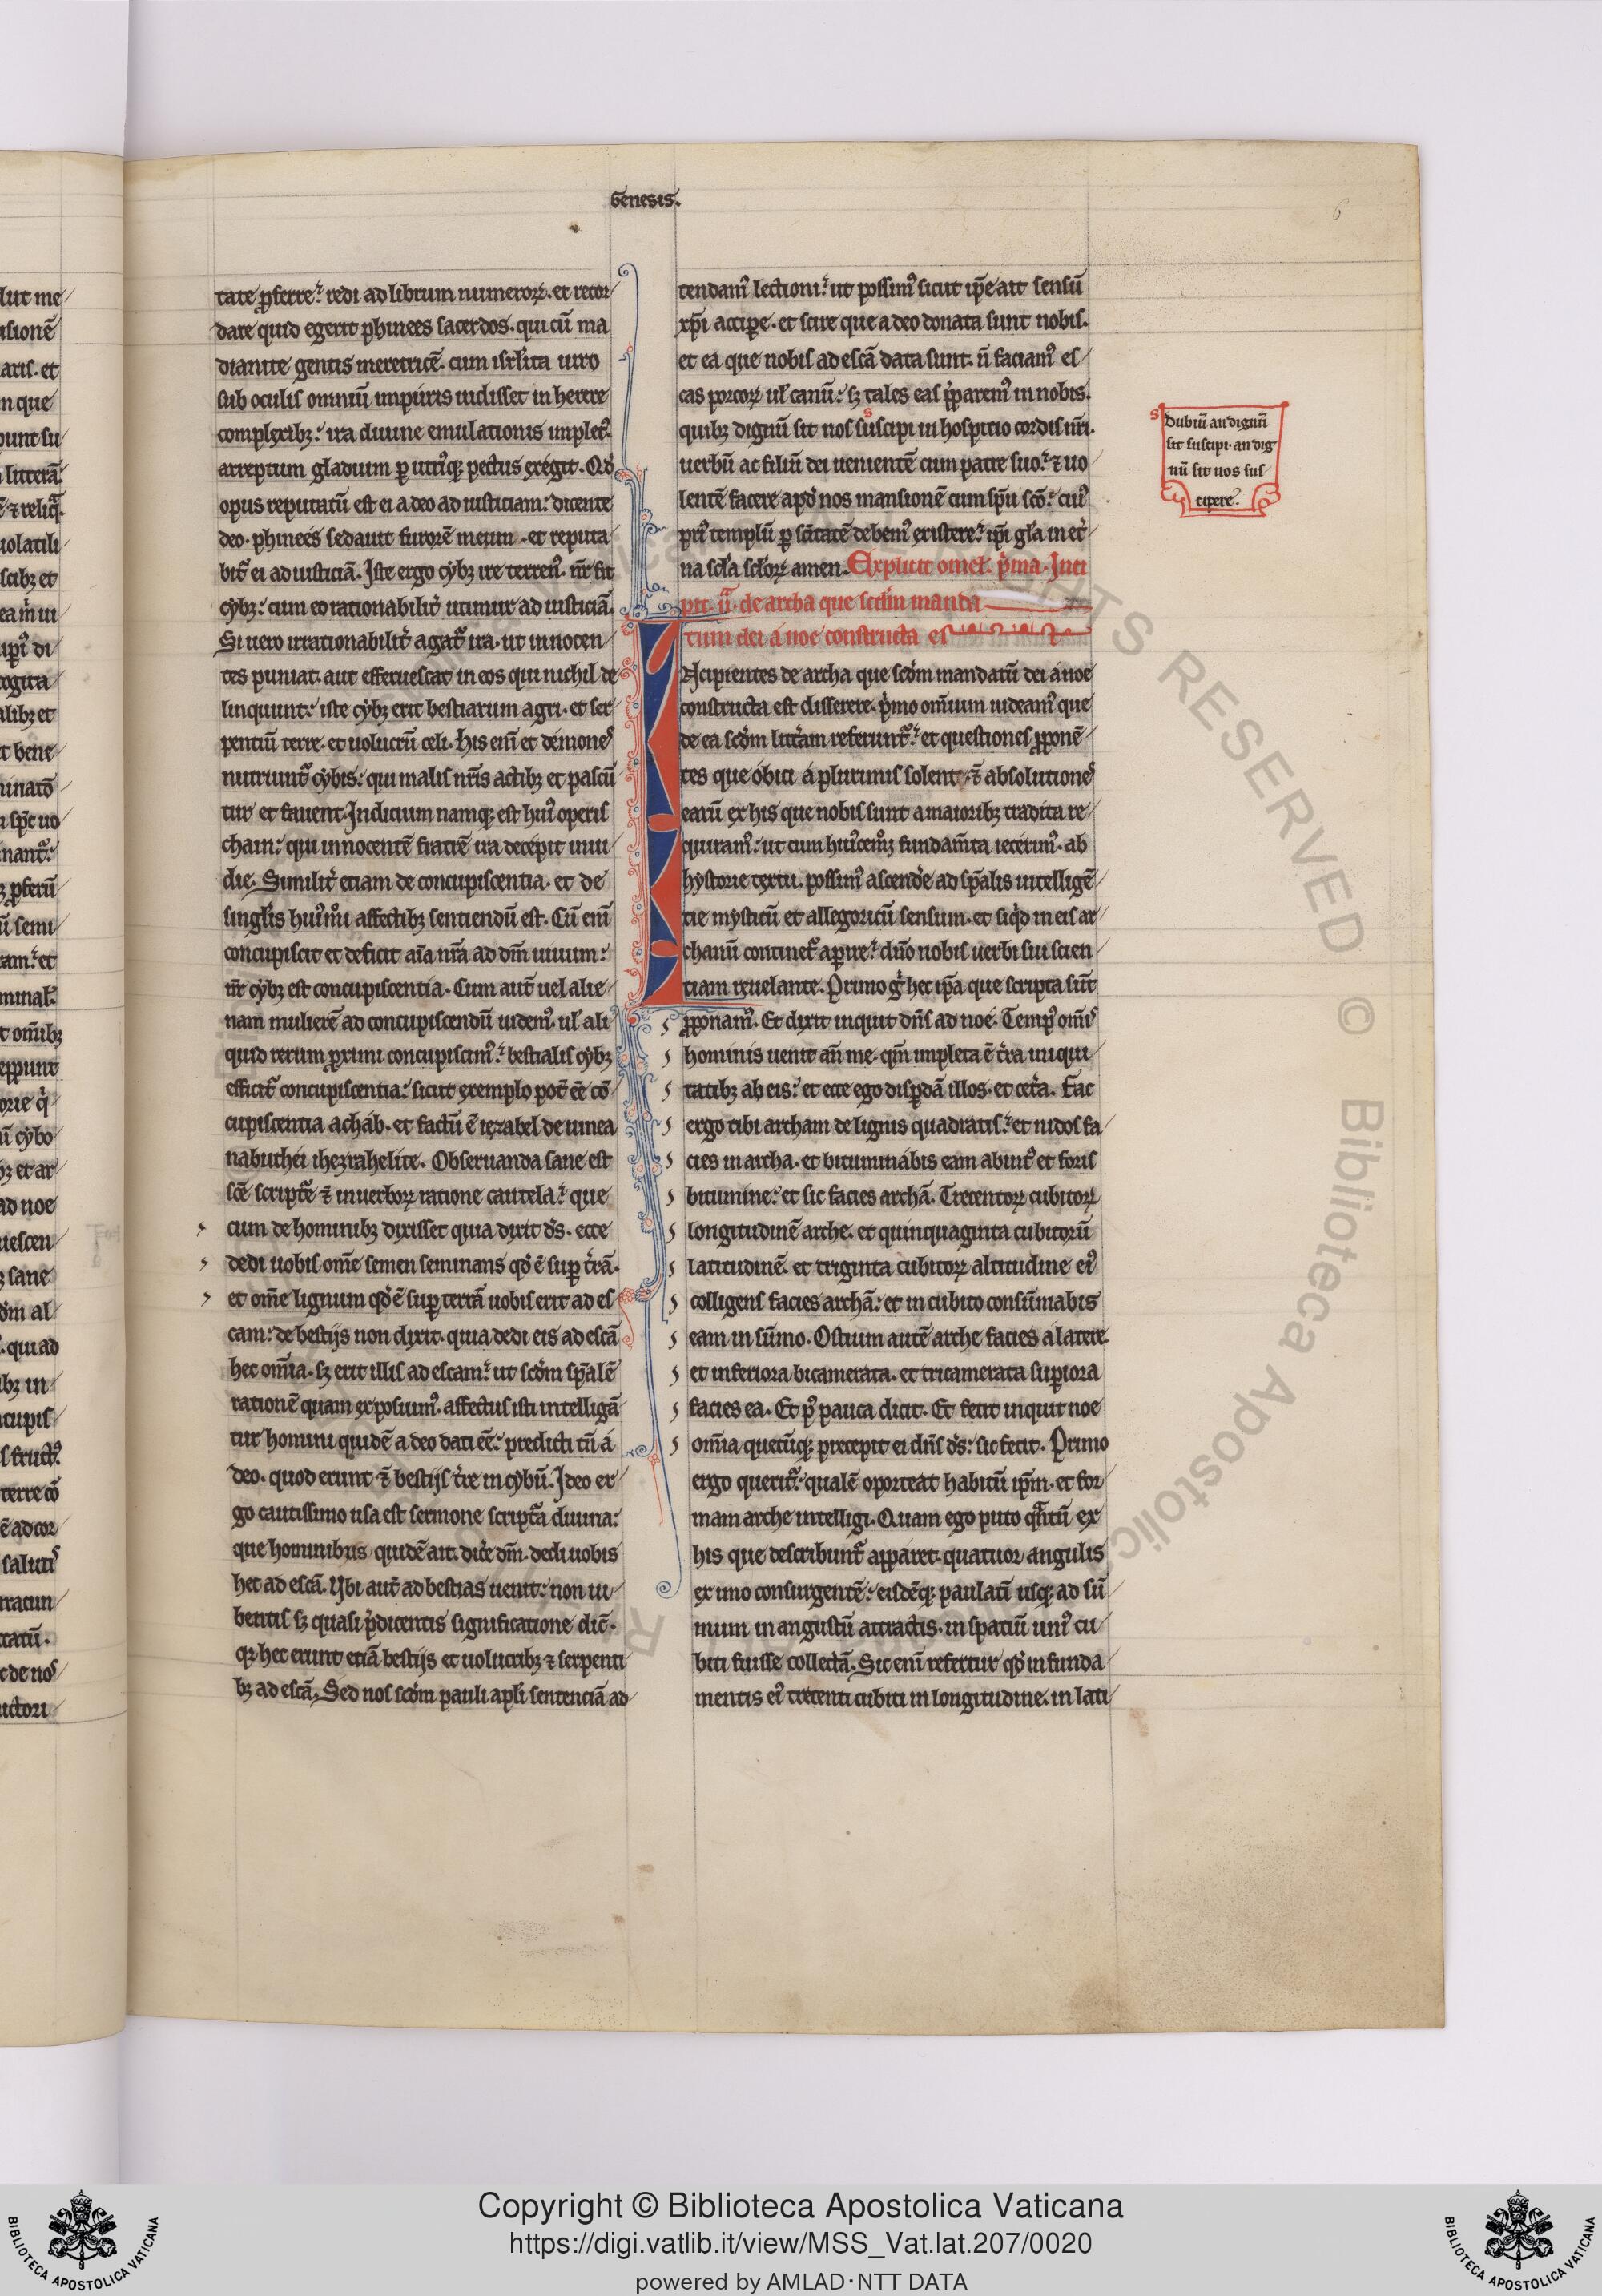 Genesis.
6
tate ꝓferre. redi ad librum numeroꝝ. et recor
dare quid egerit phinees sacerdos. qui cū ma
dianite gentis meretricē. cum isrl'ita uiro
sub oculis omniū impuris uidisset in herere
complexibꝫ: ira diuine emulationis implet᾽.
arreptum gladium ꝑ utriꝗꝫ pectus exegit. Qd̓
opus reputatū est ei a deo ad iusticiam: dicente
deo. phineés sedauit furorē meum. et reputa
bit᷑ ei ad iusticiā. Iste ergo cybꝫ ire terren᾽. nr̄ fit
cybꝫ: cum eo rationabilit᷑ utimur ad iusticiā.
Si uero irrationabilit᷑ agat᷑ ira. ut innocen
tes puniat. aut efferuescat in eos qui nichil de
linquunt: iste cybꝫ erit bestiarum agri. et ser
pentiū terre. et uolucrū celi. His enī et demones
nutriunt᷑ cybis: qui malis nr̄is actibꝫ et pascū
tur et fauent. Indicium namꝗꝫ est hui᾽ operis
chain: qui innocentē fratrē ira decepit inui
die. Similit᷑ etiam de concupiscentia. et de
singl'is hui᾽mōi affectibꝫ sentiendū est. Cū enī
concupiscit et deficit aīa nr̄a ad dm̄ uiuum:
nr̄ cybꝫ est concupiscentia. Cum aut̄ uel alie
nam mulierē ad concupiscendū uidem᾽. ul' ali
quid rerum ꝓximi concupiscim᾽: bestialis cybꝫ
efficit᷑ concupiscentia: sicut exemplo pot̄ eē cō
cupiscentia acháb. et factū ē iezabel de uinea
nabuthei ihezrahelite. Obseruanda sane est
scē scriptᷓe ⁊̄ in uerboꝝ ratione cautela: que
cum de hominibꝫ dixisset quia dixit d̓s. ecce
dedi uobis om̄e semen seminans qd̓ ē suꝑ t᷑rā.
et om̄e lignum qd̓ ē suꝑ terrā uobis erit ad es
cam: de bestijs non dixit. quia dedi eis ad escā
hec om̄ia. sꝫ erit illis ad escam: ut scd̓m sp̄alē
rationē quam exposuim᾽. affectus isti intelligā
tur homini quidē a deo dati eē: predicti tn̄ á
deo. quod erunt ⁊̄ bestijs t᷑re in cybū. Ideo er
go cautissimo usa est sermone script᷑a diuina:
que hominibus quidē ait. dic̓e dm̄. dedi uobis
hec ad escā. Ubi aut̄ ad bestias uenit: non iu
bentis sꝫ quasi p̓dicentis significatione dic̄.
qꝛ hec erunt etiā bestijs et uolucribꝫ ⁊ serpenti
bꝫ ad escā. Sed nos scd̓m pauli apl'i sentenciā ad
tendam᾽ lectioni: ut possim᾽ sicut ip̄e ait sensū
xp̄i acciꝑe. et scire que a deo donata sunt nobis.
et ea que nobis ad escā data sunt. n̄ faciam᾽ es
cas porcoꝝ ul' canū: sꝫ tales eas p̓parem᾽ in nobis.
quibꝫ dignū sit nos suscipi in hospitio cordis nr̄i.
uerbū ac filiū dei uenientē cum patre suo: ⁊ uo
lentē facere apd̓ nos mansionē cum sp̄u scō: cui᾽
pri᾽ templū ꝑ sc̄itatē debem᾽ existere: ip̄i gl'a in et᷑
na scl'a scl'oꝝ amen. Explicit omel'. p̓ma. Inci
pit. ii᷑. de archa que scd̓m manda
tum dei á noe constructa est
INcipientes de archa que scd̓m mandatū dei á noe
constructa est disserere. p̓mo om̄ium uideam᾽ que
de ea scd̓m litt᷑am referunt᷑: et questiones ꝓponē
tes que obici á plurimis solent. ⁊̄ absolutiones
earū ex his que nobis sunt a maioribꝫ tradita re
quiram᾽: ut cum hui᾽cemōi fundam̄ta iecerim᾽. ab
hystorie textu. possim᾽ ascend̓e ad sp̄alis intelligē
tie mysticū et allegoricū sensum. et siq̓d in eis ar
chanū continet᷑ aꝑire: dn̄o nobis uerbi sui scien
tiam reuelante. Primo g̓ hec ip̄a que scripta sūt
ꝓponam᾽. Et dixit inquit dn̄s ad noé. Temp᾽ om̄is
hominis uenit an̄ me. qm̄ impleta ē t᷑ra iniqui
tatibꝫ ab eis: et ecce ego disꝑdā illos. et cet᷑a. Fac
ergo tibi archam de lignis quadratis: et nidos fa
cies in archa. et bituminábis eam ab int᾽ et foris
bitumine: et sic facies archā. Trecentoꝝ cubitoꝝ
longitudinē arche. et quinquaginta cubitorū
latitudinē. et triginta cubitoꝝ altitudine ei᾽
colligens facies archā: et in cubito consūmabis
eam in sūmo. Ostium autē arche facies a latere.
et inferiora bicamerata. et tricamerata suꝑiora
facies ea. Et p᾽ pauca dicit. Et fecit inquit noe
om̄ia quecūꝗꝫ precepit ei dn̄s d̓s: sic fecit. Primo
ergo querit᷑: qualē oporteat habitū ip̄m. et for
mam arche intelligi. Quam ego puto qᷓntū ex
his que describunt᷑ apparet. quatuor angulis
ex imo consurgentē: eisdēꝗꝫ paulatī usꝗꝫ ad sū
mum in angustū attractis. in spatiū uni᾽ cu
biti fuisse collectā. Sic enī refertur qd̓ in funda
mentis ei᾽ trecenti cubiti in longitudine. in lati
s Dubiū an dignū
sit suscipi. an dig
nū sit nos sus
cipere.
Copyright © Biblioteca Apostolica Vaticana
https://digi.vatlib.it/view/MSS_Vat.lat.207/0020
powered by AMLAD·NTT DATA
BIBLIOTECA APOSTOLICA VATICANA
BIBLIOTECA APOSTOLICA VATICANA